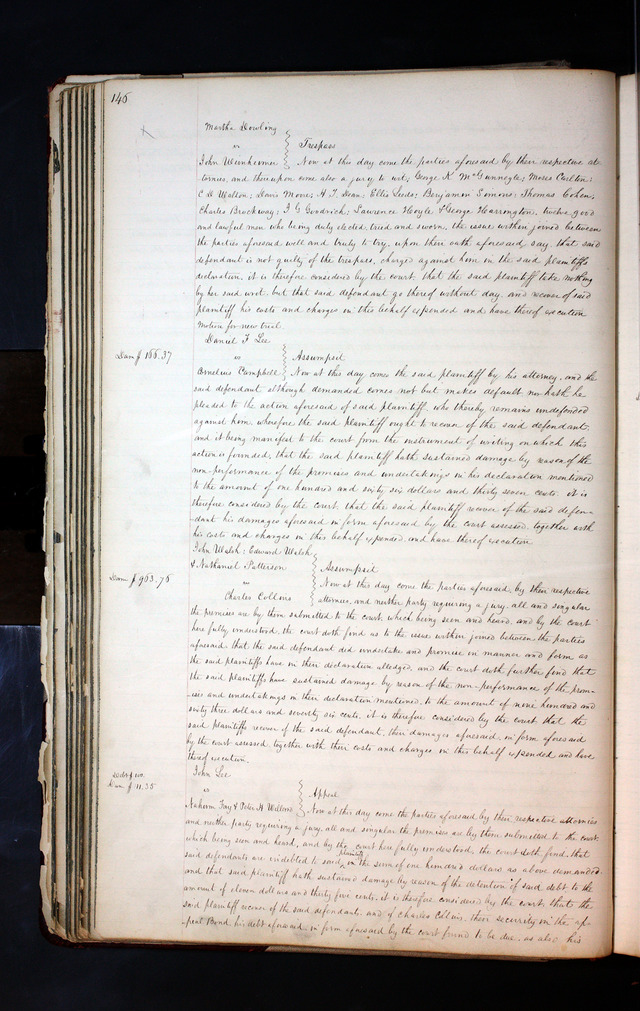 146
Martha Dowling
vs Trespass
John Weinheimer Now at this day come the parties aforesaid by their respective at
tornies, and thereupon came also a jury to wit, George K McGunnegle; Moses Carlton;
C D Wallson; Davis Moore; H T Dean; Ellis Leeds; Benjamin Somors; Thomas Cohen,
Charles Brockway; J G Goodrich; Lawrence Hoyle & George Harrington, twelve good
and lawful men who being duly elected, tried and sworn, the issue within joined between
the parties aforesaid well and truly to try, upon their oath aforesaid say, that said
defendant is not guilty of the trespass, charged against him in the said plaintiffs
declaration, it is therefore considered by the court, that the said plaintiff take nothing
by her said writ, but that said defendant go thereof without day, and recover of said
plaintiff his costs and charges in this behalf expended and have thereof execution
Motion for new trial.
Daniel T Lee
Dam $ 166.37 vs Assumpsit
Cornelius Campbell Now at this day comes the said plaintiff by his attorney, and the
said defendant although demanded comes not but makes default nor hath he
pleaded to the action aforesaid of said plaintiff, who thereby remains undefended
against him, wherefore the said plaintiff ought to recover of the said defendant,
and it being manifest to the court from the instrument of writing on which this
action is founded, that the said plaintiff hath sustained damage by reason of the
non-performance of the promises and undertakings in his declaration mentioned
to the amount of one hundred and sixty six dollars and thirty seven cents. it is
therefore considered by the court that the said plaintiff recover of the said defen-
-dant his damages aforesaid in form aforesaid by the court assessed, together with
his costs and charges in this behalf expended, and have thereof execution
John Walsh; Edward Walsh
& Nathaniel Patterson Assumpsit
Dam $ 963.76 vs Now at this day come the parties aforesaid, by their respective
Charles Collins attornies, and neither party requiring a jury, all and singular
the premises are by them submitted to the court, which being seen and heard, and by the court
here fully understood, the court doth find as to the issue within joined between the parties
aforesaid, that the said defendant did undertake and promise in manner and form as
the said plaintiffs have in their declaration alledged, and the court doth further find that
the said plaintiffs have sustained damage by reason of the non-performance of the prom-
-ises and undertakings in their declaration mentioned, to the amount of nine hundred and
sixty three dollars and seventy six cents, it is therefore considered by the court that the
said plaintiffs recover of the said defendant, their damages aforesaid, in form aforesaid
by the court assessed, together with their costs and charges in this behalf expended and have
thereof execution.
John Lee
Debt $ 100.
Dam $ 11.35 vs Appeal
Nahum Fay & Peter H Willard Now at this day come the parties aforesaid by their respective attornies
and neither party requiring a jury, all and singular the premises are by them submitted to the court
which being seen and heard, and by the court here fully understood, the court doth find that
said defendants are indebted to said plaintiff in the sum of one hundred dollars as above demanded
and that said plaintiff hath sustained damage by reason of the detention of said debt to the
amount of eleven dollars and thirty five cents. it is therefore considered by the court that the
said plaintiff recover of the said defendants, and of Charles Collins, their security in the ap-
-peal Bond, his debt aforesaid, in form aforesaid by the court found to be due, as also his